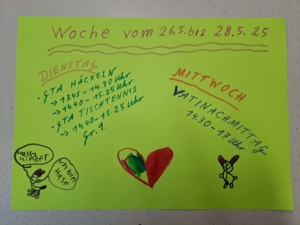 Woche vom 26.5. bis 28.5.25
DIENSTAG
· GTA HÄCKELN
→ 1345 - 14.30 Uhr
→ 14.40 - 15.25 Uhr
· GTA TISCHTENNIS
→ 14.40 - 15.25 Uhr
Gr. 1.
MITTWOCH
VATINACHMITTAG
14.30 - 17 Uhr
Hallo
KINDER
Ich bin
Hase